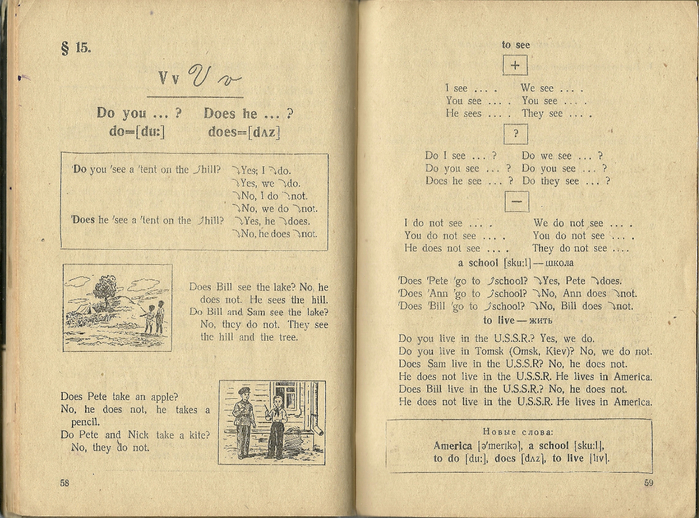 § 15.
V v V v
Do you ... ? Does he ... ?
do=[du:] does=[dʌz]
'Do you 'see a 'tent on the hill? Yes; I do.
Yes, we do.
No, I do not.
No, we do not.
'Does he 'see a 'tent on the hill? Yes, he does.
No, he does not.
Does Bill see the lake? No, he
does not. He sees the hill.
Do Bill and Sam see the lake?
No, they do not. They see
the hill and the tree.
Does Pete take an apple?
No, he does not, he takes a
pencil.
Do Pete and Nick take a kite?
No, they do not.
58
to see
+
I see ... . We see ... .
You see ... . You see ... .
He sees ... . They see ... .
?
Do I see ... ? Do we see ... ?
Do you see ... ? Do you see ... ?
Does he see ... ? Do they see ... ?
—
I do not see ... . We do not see ... .
You do not see ... . You do not see ... .
He does not see ... . They do not see ... .
a school [sku:l] — школа
'Does 'Pete 'go to school? Yes, Pete does.
'Does 'Ann 'go to school? No, Ann does not.
'Does 'Bill 'go to school? No, Bill does not.
to live — жить
Do you live in the U.S.S.R.? Yes, we do.
Do you live in Tomsk (Omsk, Kiev)? No, we do not.
Does Sam live in the U.S.S.R.? No, he does not.
He does not live in the U.S.S.R. He lives in America.
Does Bill live in the U.S.S.R.? No, he does not.
He does not live in the U.S.S.R. He lives in America.
Новые слова:
America [ə'merɪkə], a school [sku:l],
to do [du:], does [dʌz], to live [lɪv].
59